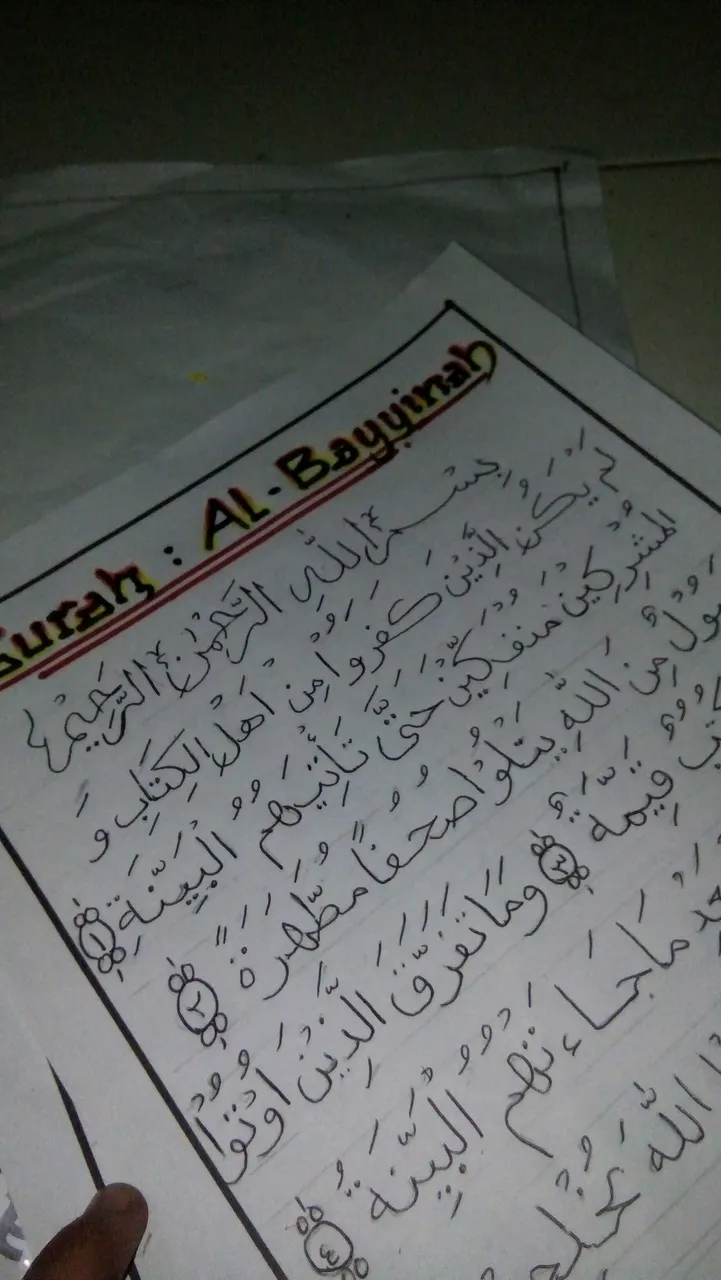 Surah : AL-Bayyinah
بِسْمِ اللَّهِ الرَّحْمٰنِ الرَّحِيْمِ
لَمْ يَكُنِ الَّذِيْنَ كَفَرُوا مِنْ اَهْلِ الْكِتَابِ وَ
الْمُشْرِكِيْنَ مُنْفَكِّيْنَ حَتَّى تَأْتِيَهُمُ الْبَيِّنَةُ ١
مِنَ اللَّهِ يَتْلُوْا صُحُفًا مُطَهَّرَةً ٢
قَيِّمَةٌ ٣ وَمَا تَفَرَّقَ الَّذِيْنَ اُوْتُوْا
مَا جَاءَتْهُمُ الْبَيِّنَةُ ٤
اللَّهَ